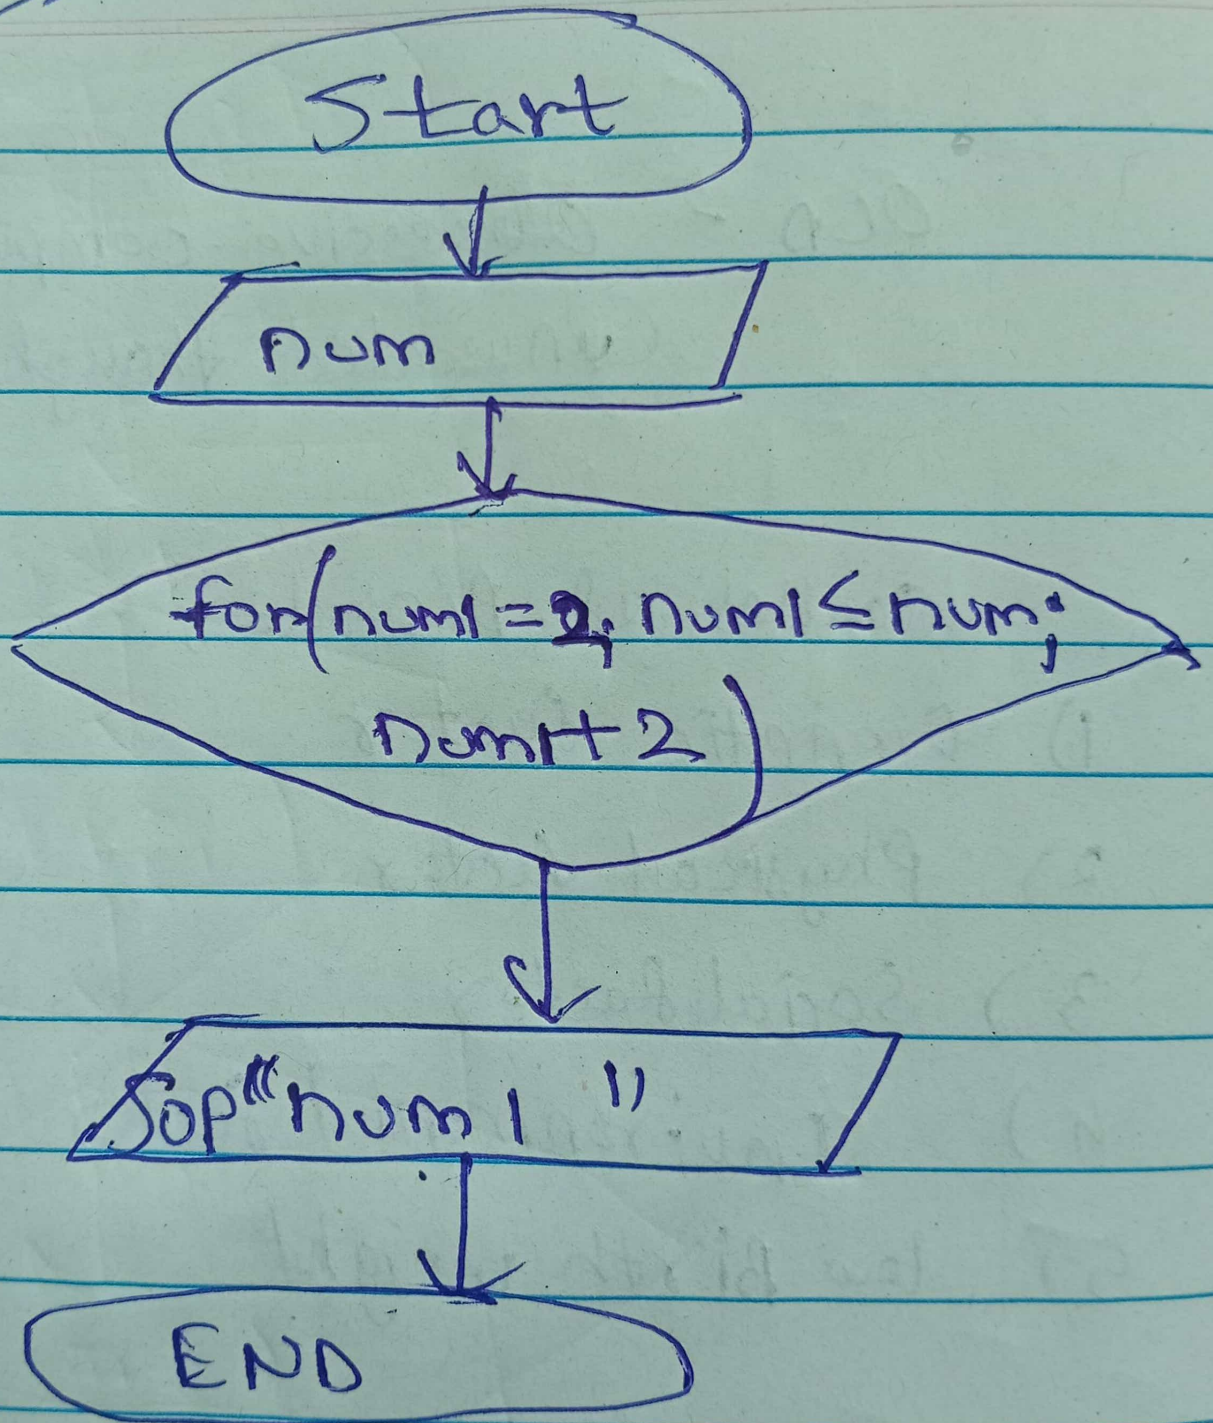 Start
num
for(num1=2; num1≤num;
num1+2)
Sop"num1 "
END